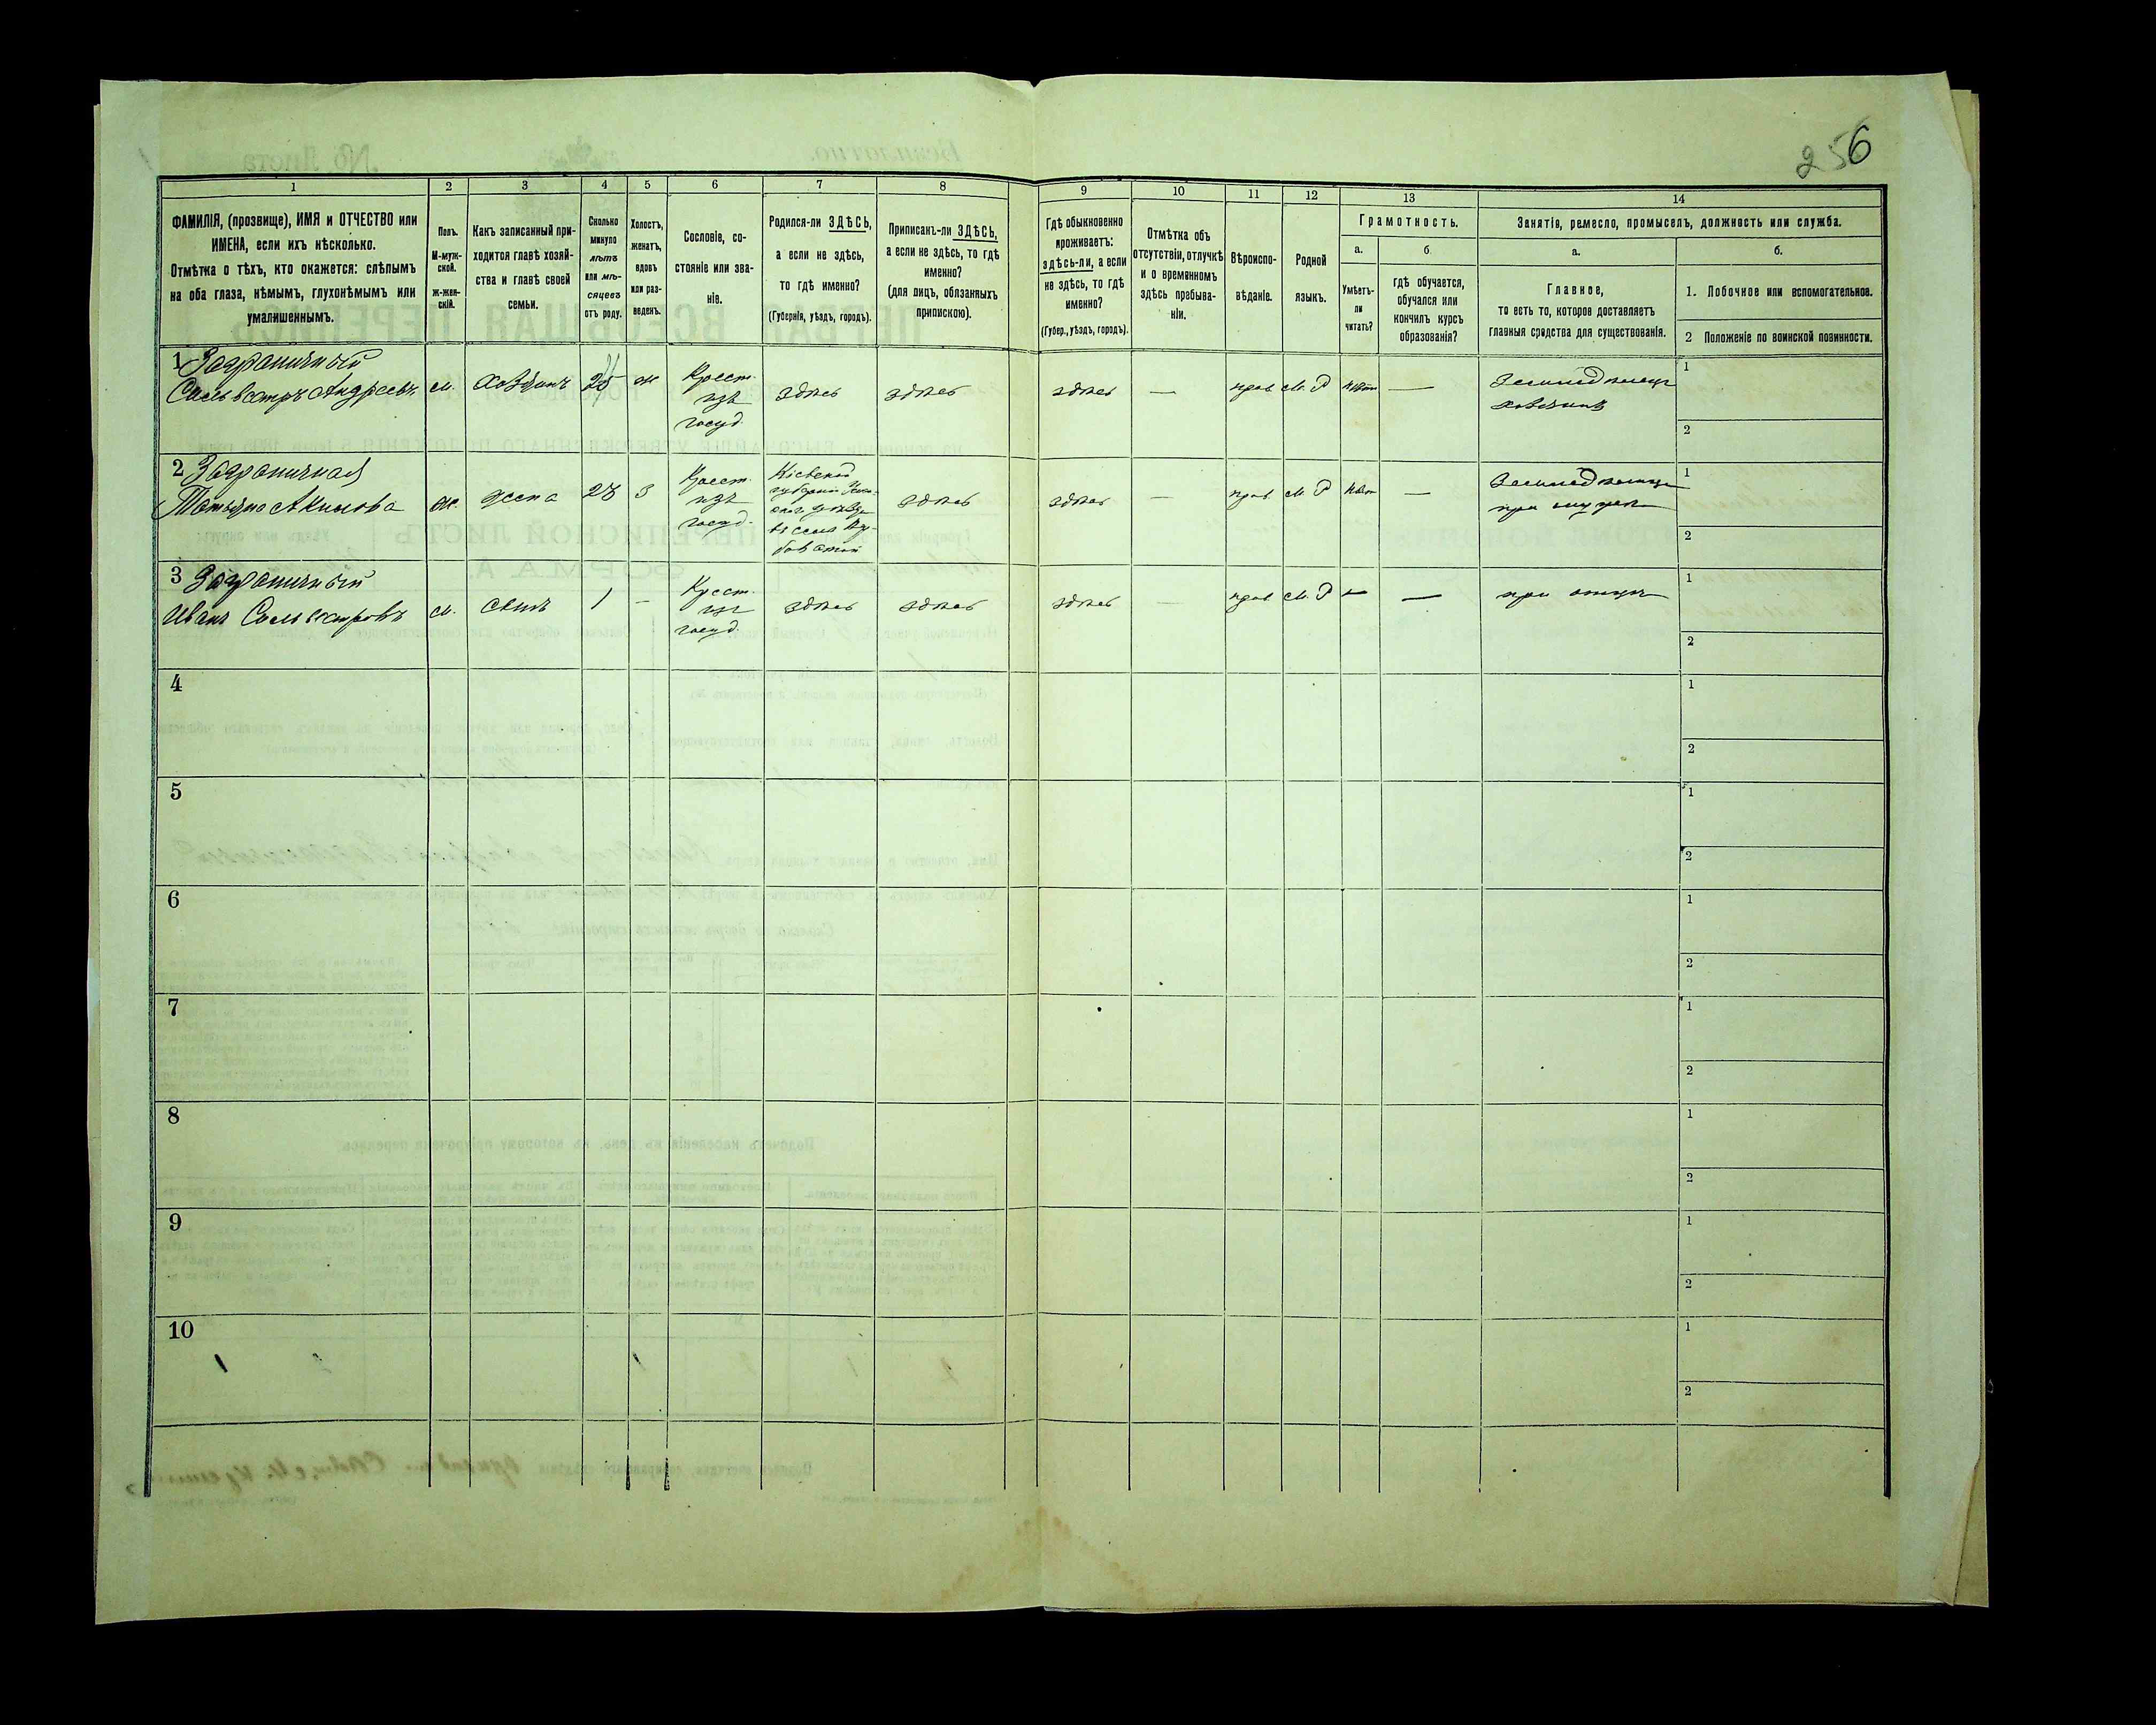 256
1
2
3
4
5
6
7
8
9
10
11
12
13
14
ФАМИЛІЯ, (прозвище), ИМЯ и ОТЧЕСТВО или
ИМЕНА, если ихъ нѣсколько.
Отмѣтка о тѣхъ, кто окажется: слѣпымъ
на оба глаза, нѣмымъ, глухонѣмымъ или
умалишеннымъ.
Полъ.
М-муж-
ской.
ж-жен-
скій.
Какъ записанный при-
ходится главѣ хозяй-
ства и главѣ своей
семьи.
Сколько
минуло
лѣтъ
или мѣ-
сяцевъ
отъ роду.
Холостъ,
женатъ,
вдовъ
или раз-
веденъ.
Сословіе, со-
стояніе или зва-
ніе.
Родился-ли ЗДѢСЬ,
а если не здѣсь,
то гдѣ именно?
(Губернія, уѣздъ, городъ).
Приписанъ-ли ЗДѢСЬ,
а если не здѣсь, то гдѣ
именно?
(для лицъ, обязанныхъ
припискою).
Гдѣ обыкновенно
проживаетъ:
здѣсь-ли, а если
не здѣсь, то гдѣ
именно?
(Губер., уѣздъ, городъ).
Отмѣтка объ
отсутствіи, отлучкѣ
и о временномъ
здѣсь пребыва-
ніи.
Вѣроиспо-
вѣданіе.
Родной
языкъ.
Грамотность.
а.
б.
Умѣетъ-
ли
читать?
гдѣ обучается,
обучался или
кончилъ курсъ
образованія?
Занятіе, ремесло, промыселъ, должность или служба.
а.
б.
Главное,
то есть то, которое доставляетъ
главныя средства для существованія.
1. Побочное или вспомогательное.
2 Положеніе по воинской повинности.
1 Заграничный
Сильвестръ Андреевъ
м.
хозяинъ
ж
Крест.
изъ
госуд.
здѣсь
здѣсь
здѣсь
—
прав
М. Р
нѣт
—
Земледѣлецъ
хозяинъ
1
2
2 Заграничная
Татьяна Акимова
ж.
жена
23
З
Крест.
изъ
госуд.
Кіевской
губерніи
здѣсь
здѣсь
—
прав
М. Р
нѣт
—
Земледѣлецъ
при мужѣ
1
2
3 Заграничный
Иванъ Сильвестровъ
м.
сынъ
1
—
Крест.
изъ
госуд.
здѣсь
здѣсь
здѣсь
—
прав
М. Р
—
—
при отцѣ
1
2
4
1
2
5
1
2
6
1
2
7
1
2
8
1
2
9
1
2
10
1
2